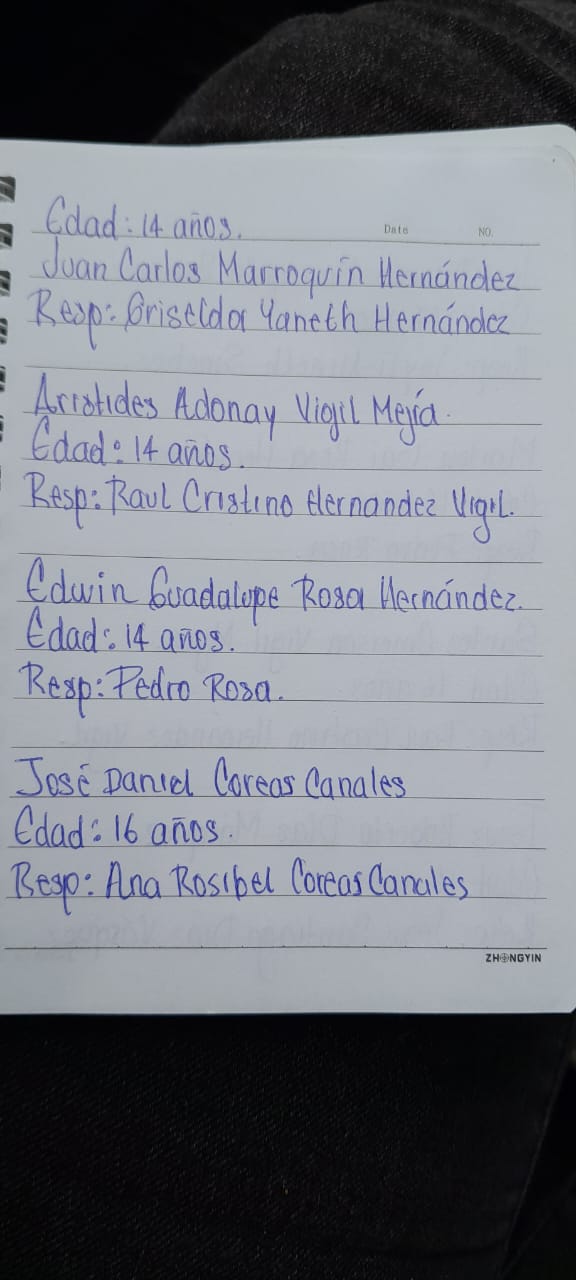 Date NO.
Edad: 14 años.
Juan Carlos Marroquín Hernández
Resp: Griselda Yaneth Hernández
Arístides Adonay Vigil Mejía.
Edad: 14 años.
Resp: Raul Cristino Hernandez Vigil.
Edwin Guadalupe Rosa Hernández.
Edad: 14 años.
Resp: Pedro Rosa.
José Daniel Coreas Canales
Edad: 16 años.
Resp: Ana Rosibel Coreas Canales
ZHONGYIN